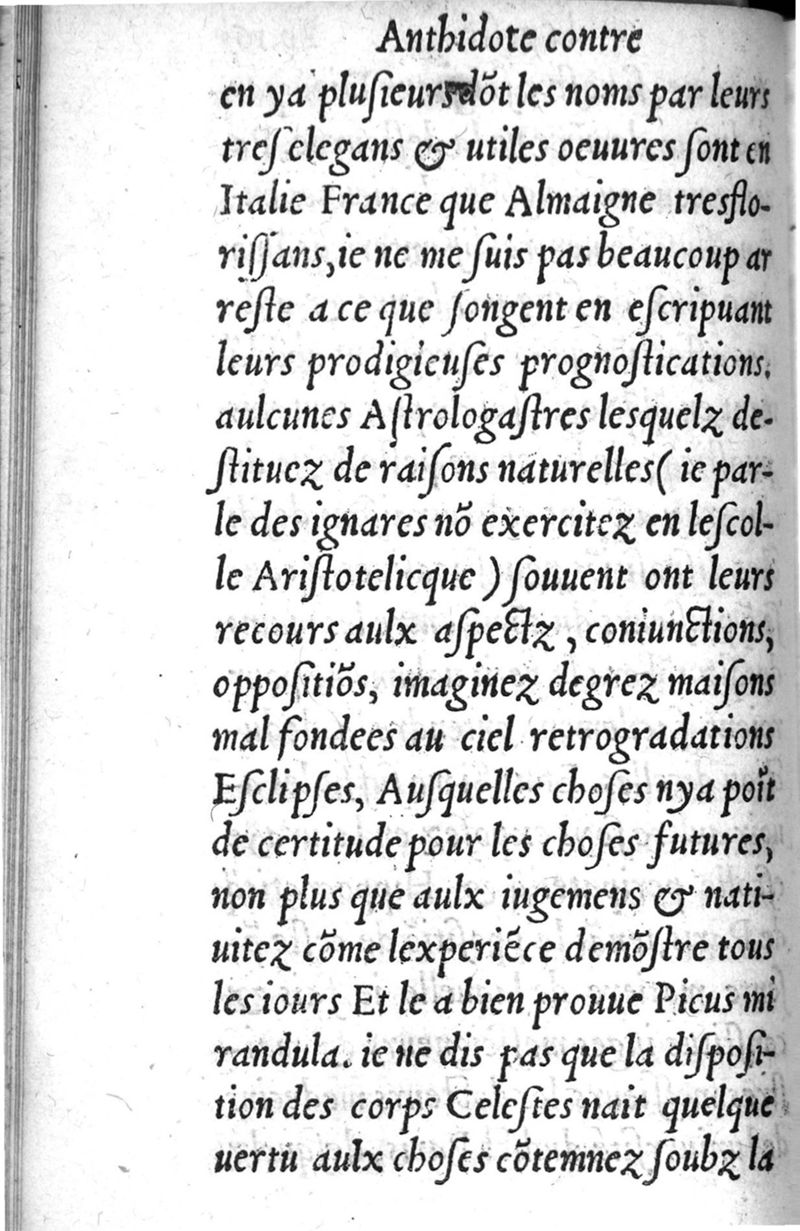 Anthidote contre
en ya pluſieurs dõt les noms par leurs
treſelegans & utiles oeuures ſont en
Italie France que Almaigne tresflo-
riſſans, ie ne me ſuis pas beaucoup ar
reſte a ce que ſongent en eſcripuant
leurs prodigieuſes prognoſtications,
aulcunes Aſtrologaſtres lesquelz de-
ſtituez de raiſons naturelles( ie par-
le des ignares nõ exercitez en leſcol-
le Ariſtotelicque ) ſouuent ont leurs
recours aulx aſpectz , coniunctions,
oppoſitiõs, imaginez degrez maiſons
mal fondees au ciel retrogradations
Eſclipſes, Auſquelles choſes nya poĩt
de certitude pour les choſes futures,
non plus que aulx iugemens & nati-
uitez cõme lexperiẽce demõſtre tous
les iours Et le a bien prouue Picus mi
randula. ie ne dis pas que la diſpoſi-
tion des corps Celeſtes nait quelque
uertu aulx choſes cõtemnez ſoubz la